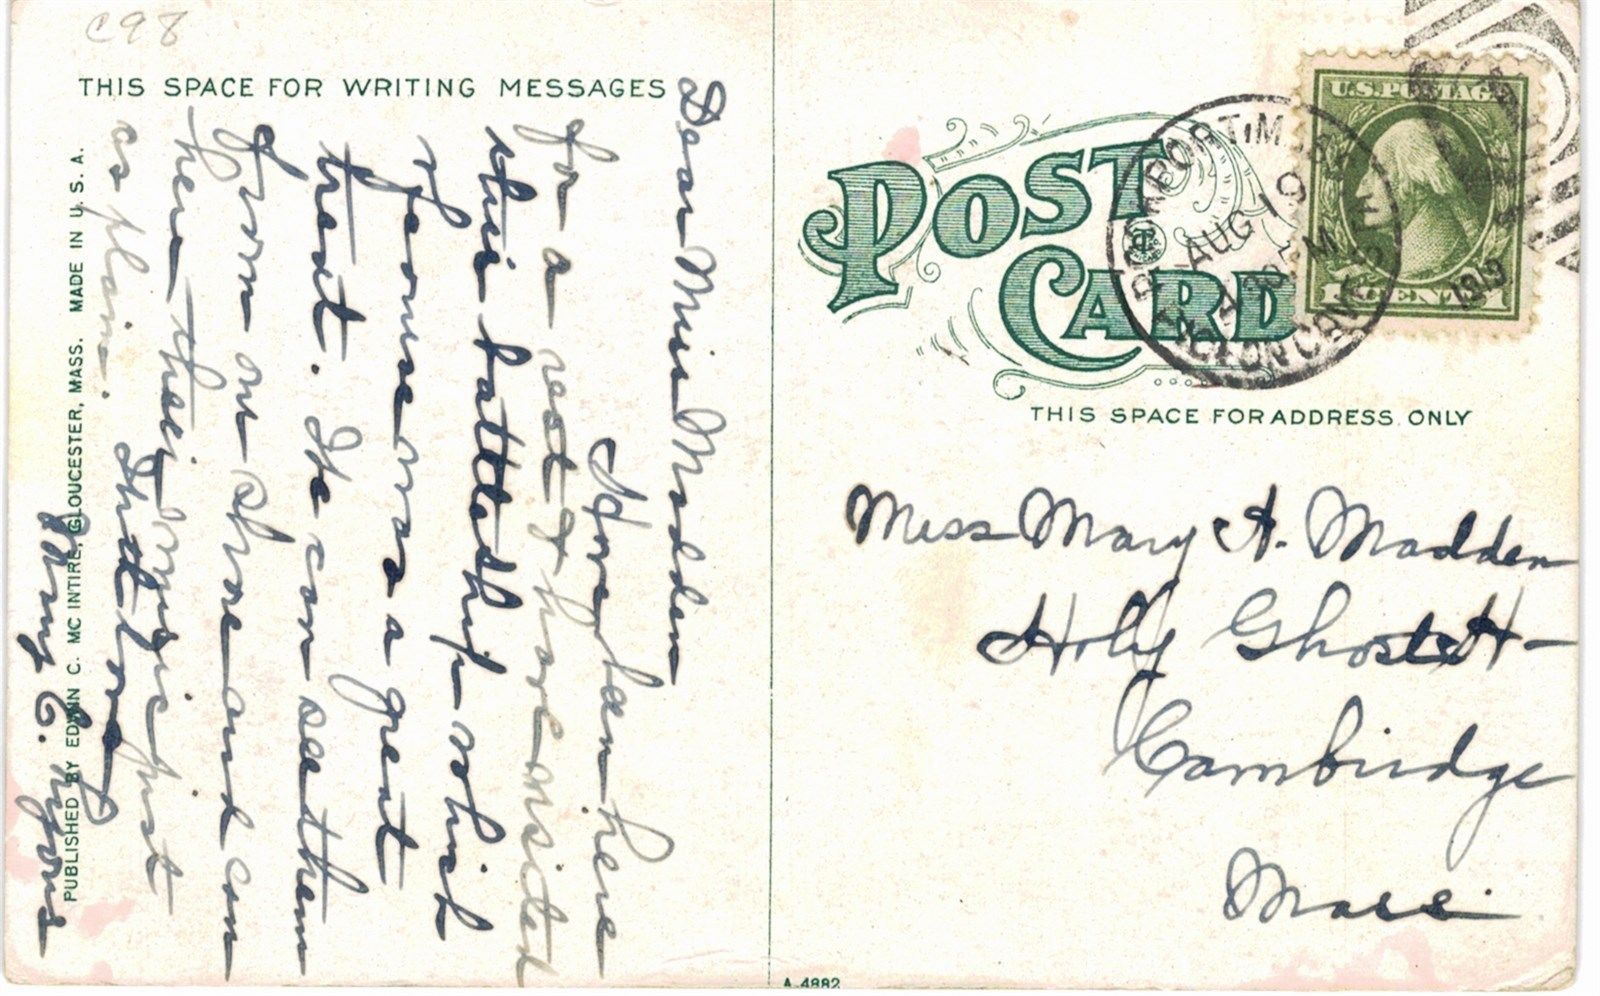 C98
THIS SPACE FOR WRITING MESSAGES
Dear Miss Madden
Have been here
for a rest & have visited
this battleship which
of course was a great
treat. We can see them
from our shore and can
hear their music just
as plain.
With love
Mary C. Lyons
PUBLISHED BY EDWIN C. MC INTIRE, GLOUCESTER, MASS. MADE IN U. S. A.
POST CARD
ROCKPORT, MASS
AUG 19
1919
U.S. POSTAGE
1 CENT 1
THIS SPACE FOR ADDRESS ONLY
Miss Mary A. Madden
Holy Ghost H-
Cambridge
Mass.
A-4882